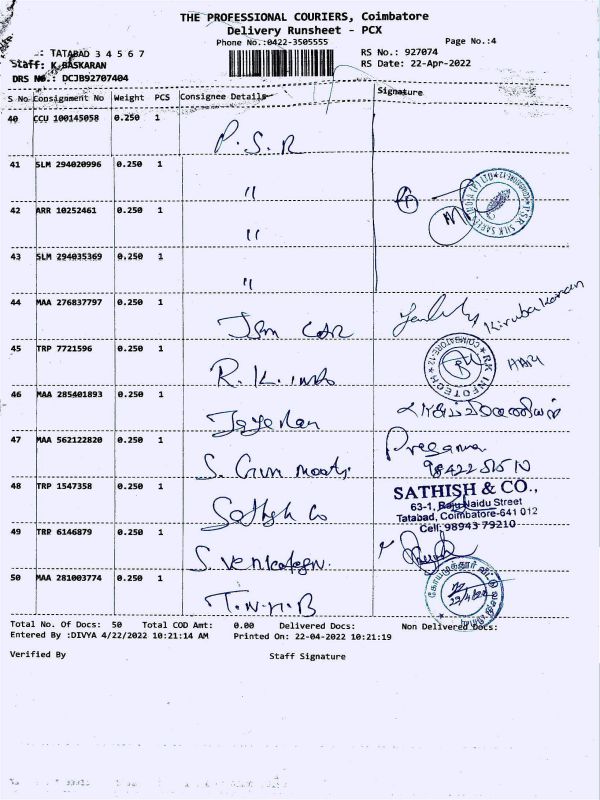 THE PROFESSIONAL COURIERS, Coimbatore
Delivery Runsheet - PCX
Phone No.:0422-3505555
Page No.:4
.: TATABAD 3 4 5 6 7
RS No.: 927074
Staff: K.BASKARAN
RS Date: 22-Apr-2022
DRS No.: DCJB92707404
S No Consignment No Weight PCS Consignee Details Signature
40 CCU 100145058 0.250 1
P.S.R
41 SLM 294020996 0.250 1
"
42 ARR 10252461 0.250 1
"
43 SLM 294035369 0.250 1
"
44 MAA 276837797 0.250 1
Kirubakaran
45 TRP 7721596 0.250 1
R.K. info
RK INFOTECH
COIMBATORE-12
HARI
46 MAA 285401893 0.250 1
47 MAA 562122820 0.250 1
Prasanna
48 TRP 1547358 0.250 1
Sathish Co
SATHISH & CO.,
63-1, Raju Naidu Street
Tatabad, Coimbatore-641 012
Cell: 98943 79210
49 TRP 6146879 0.250 1
50 MAA 281003774 0.250 1
T.N.H.B
Total No. Of Docs: 50 Total COD Amt: 0.00 Delivered Docs: Non Delivered Docs:
Entered By :DIVYA 4/22/2022 10:21:14 AM Printed On: 22-04-2022 10:21:19
Verified By Staff Signature